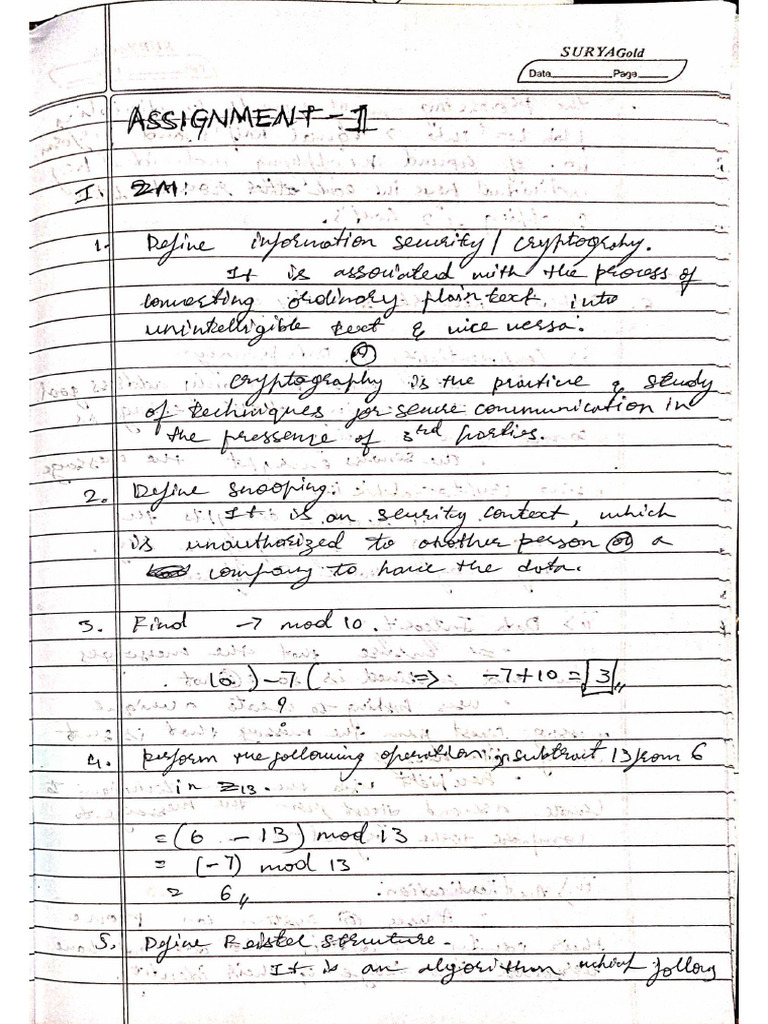 SURYAGold
Date Page
ASSIGNMENT-1
I. 2M:
1. Define information security / cryptography.
It is associated with the process of
converting ordinary plain text, into
unintelligible text & vice versa.
or
cryptography is the practice & study
of techniques for secure communication in
the pressense of 3rd parties.
2. Define snooping.
It is an security context, which
is unauthorized to another person or a
company to have the data.
3. Find -7 mod 10.
10)-7( => -7+10 = 3
4. perform the following operation; subtract 13 from 6
in Z13.
= (6 - 13) mod 13
= (-7) mod 13
= 6
5. Define Feistel structure.
It is an algorithm which follows